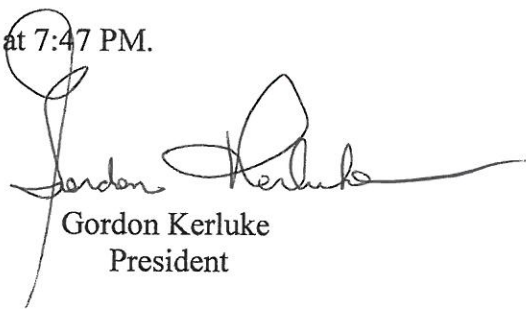 at 7:47 PM.
Gordon Kerluke
Gordon Kerluke
President